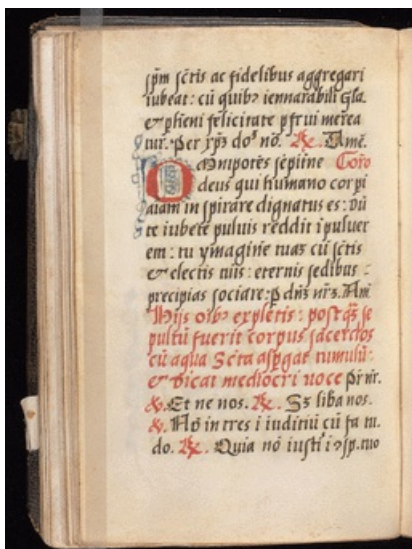 sp̄m sc̄tis ac fidelibus aggregari
iubeat: cū quibꝫ iennarabili gl̄a.
⁊ p̄heni felicitate p̄frui merea
tur. Per xp̄ꝫ doꝫ nō. ℟. Amē.
Omnipotēs sēpiīne Coro
deus qui humano corpi
aīam in spirāre dignatus es: dū
te iubēte puluis reddit i puluer
em: tu ymagine tuaꝫ cū sc̄tis
⁊ electis tuis: eternis sedibus :
precipias sociare: ꝑ dn̄ꝫ nr̄ꝫ. Am̄
Hijs oībꝫ expletis: postqꝫ̄ se
pultū fuerit corpus sacerdos
cū aqua Sc̄ita asꝑgat tumulū:
⁊ dicat mediocri uoce Pr̄ nr̄.
℣. Et ne nos. ℟. Sꝫ liba nos.
℣. Nō in tres i iuditiū cū fa tu.
do. ℟. Quia nō iusti i ꝯsp. tuo